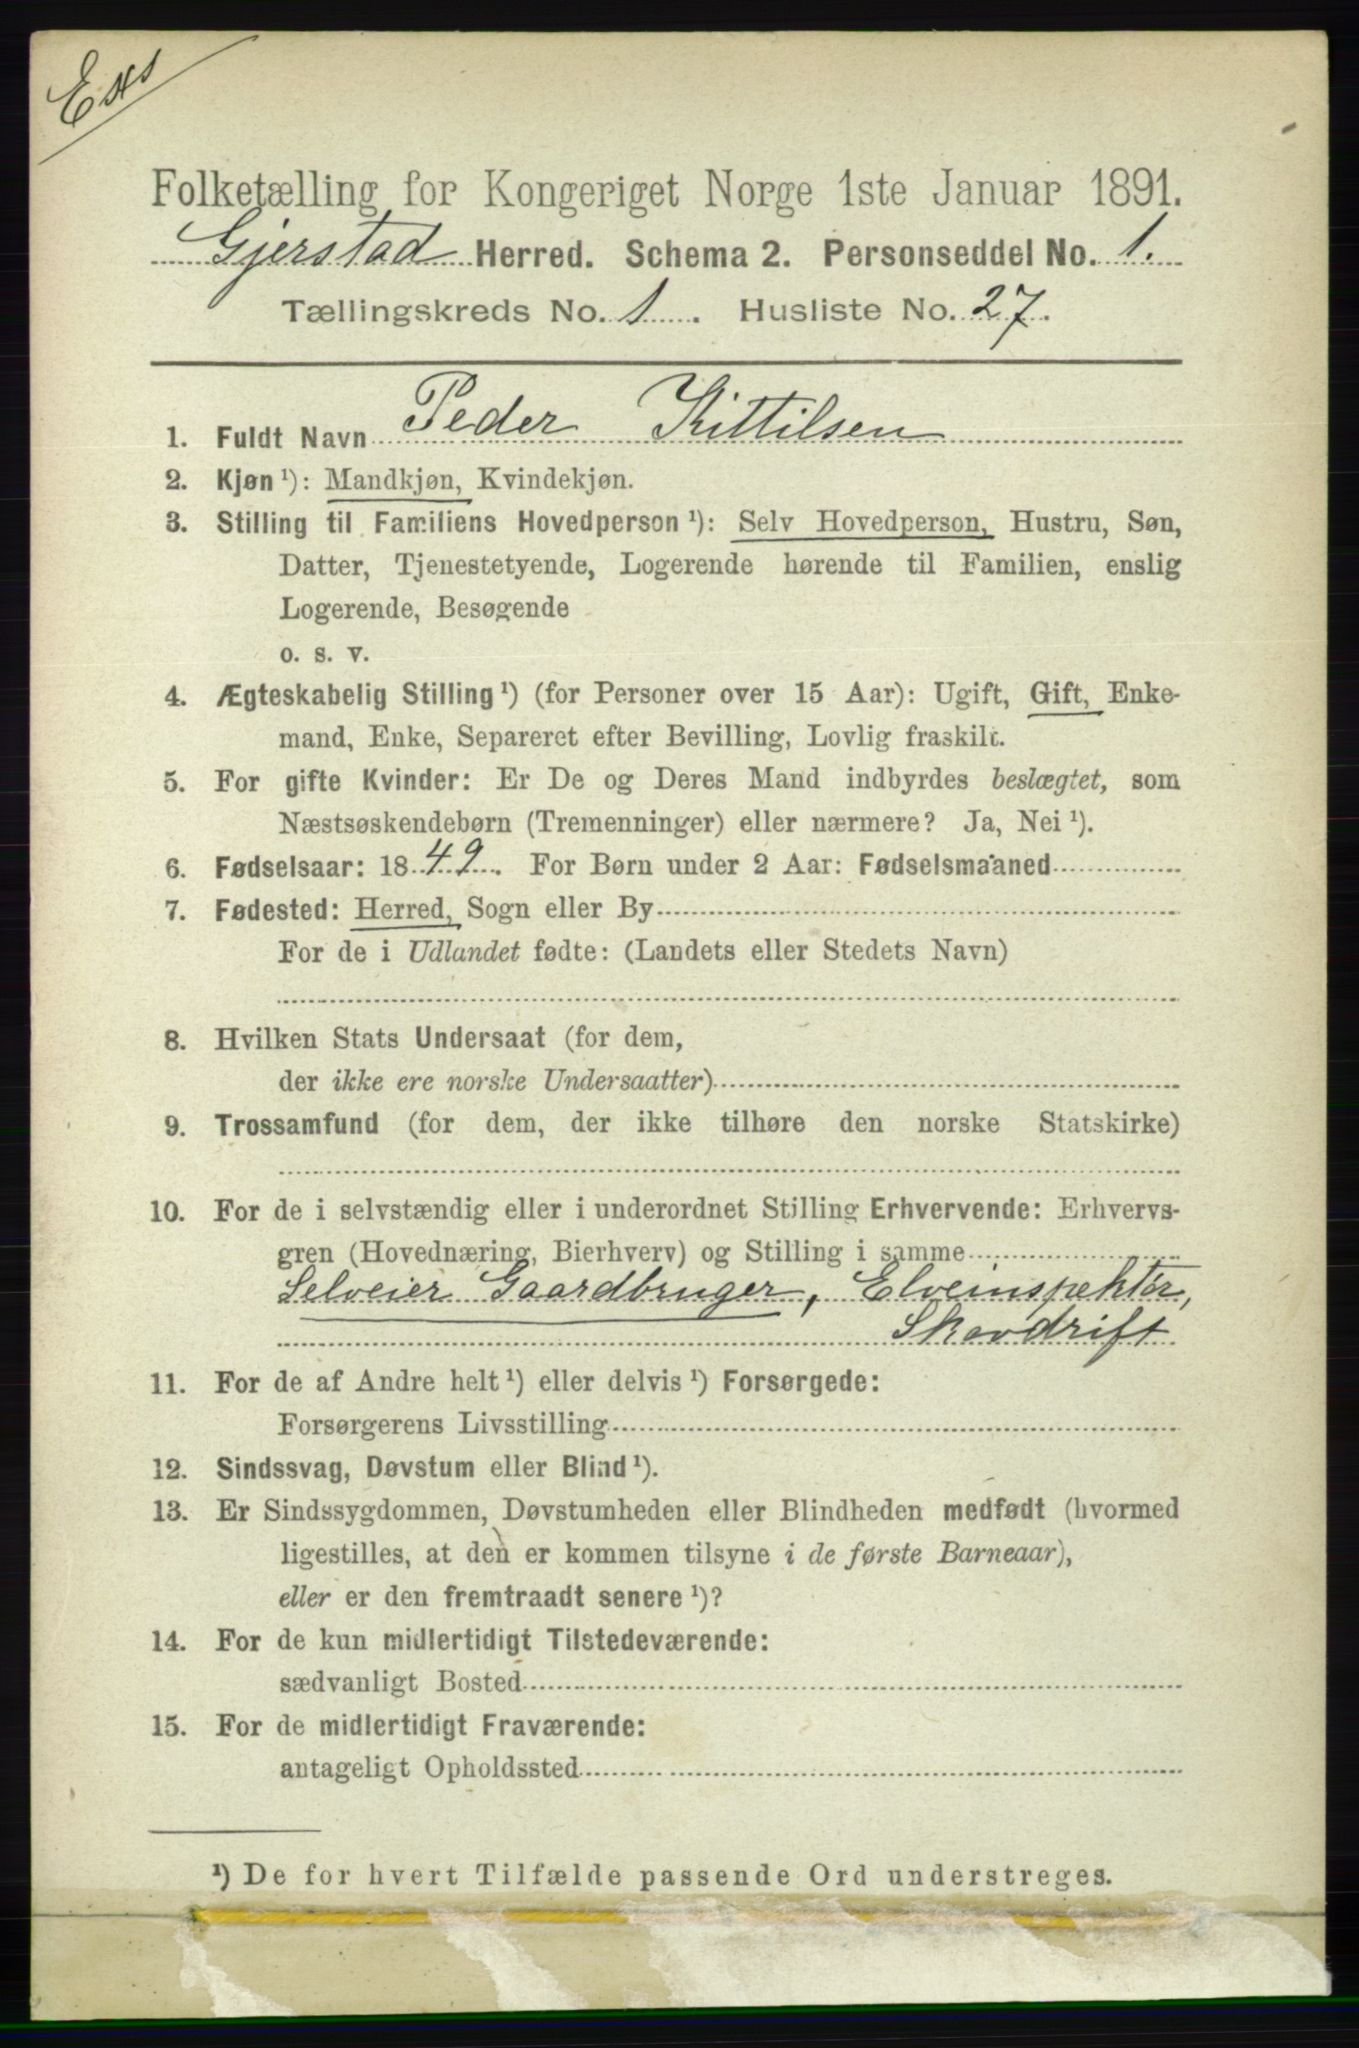 Folketælling for Kongeriget Norge 1ste Januar 1891.
Gjerstad Herred. Schema 2. Personseddel No. 1.
Tællingskreds No. 1. Husliste No. 27.
1. Fuldt Navn Peder Kittilsen
2. Kjøn ¹): Mandkjøn, Kvindekjøn.
3. Stilling til Familiens Hovedperson ¹): Selv Hovedperson, Hustru, Søn,
Datter, Tjenestetyende, Logerende hørende til Familien, enslig
Logerende, Besøgende
o. s. v.
4. Ægteskabelig Stilling ¹) (for Personer over 15 Aar): Ugift, Gift, Enke-
mand, Enke, Separeret efter Bevilling, Lovlig fraskilt.
5. For gifte Kvinder: Er De og Deres Mand indbyrdes beslægtet, som
Næstsøskendebørn (Tremenninger) eller nærmere? Ja, Nei ¹).
6. Fødselsaar: 1849. For Børn under 2 Aar: Fødselsmaaned
7. Fødested: Herred, Sogn eller By
For de i Udlandet fødte: (Landets eller Stedets Navn)
8. Hvilken Stats Undersaat (for dem,
der ikke ere norske Undersaatter)
9. Trossamfund (for dem, der ikke tilhøre den norske Statskirke)
10. For de i selvstændig eller i underordnet Stilling Erhvervende: Erhvervs-
gren (Hovednæring, Bierhverv) og Stilling i samme
Selveier Gaardbruger, Elveinspektør,
Skovdrift
11. For de af Andre helt ¹) eller delvis ¹) Forsørgede:
Forsørgerens Livsstilling
12. Sindssvag, Døvstum eller Blind ¹).
13. Er Sindssygdommen, Døvstumheden eller Blindheden medfødt (hvormed
ligestilles, at den er kommen tilsyne i de første Barneaar),
eller er den fremtraadt senere ¹)?
14. For de kun midlertidigt Tilstedeværende:
sædvanligt Bosted
15. For de midlertidigt Fraværende:
antageligt Opholdssted
¹) De for hvert Tilfælde passende Ord understreges.